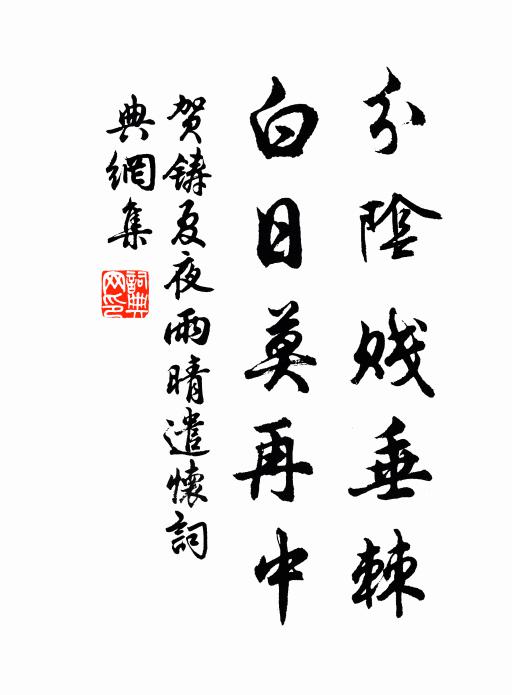 分陰賤垂棘
白日莫再中
賀鑄夏夜雨晴遣懷詞
典網集
詞典
网印